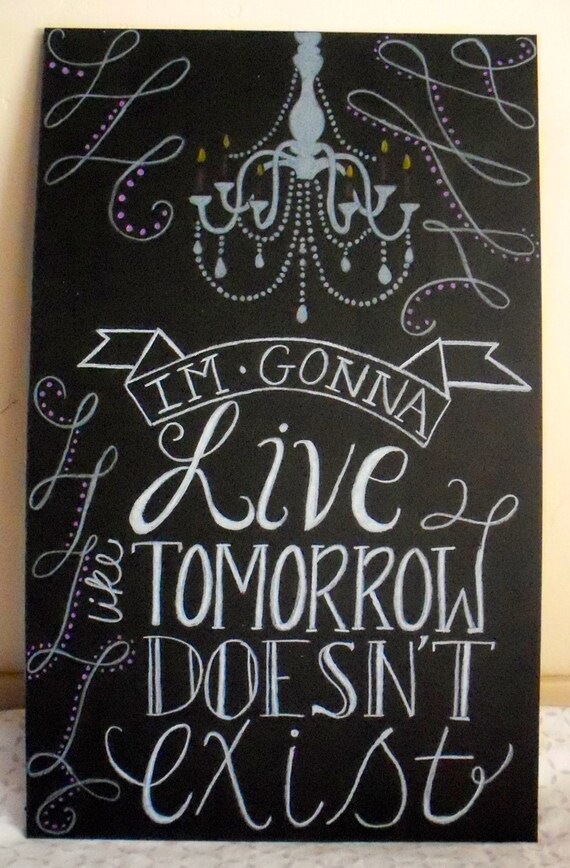 IM · GONNA
Live
like
TOMORROW
DOESN'T
exist